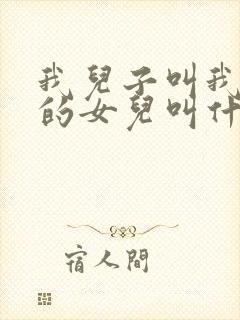 我兒子叫我
的女兒叫什
宿人間